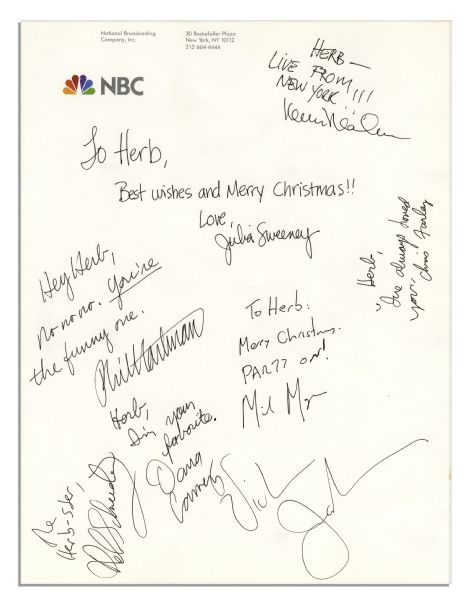 National Broadcasting
Company, Inc.
30 Rockefeller Plaza
New York, NY 10112
212 664-4444
NBC
HERB—
LIVE FROM
NEW YORK!!!
Kevin Nealon
To Herb,
Best wishes and Merry Christmas!!
Love,
Julia Sweeney
Herb,
I've always loved
you, Chris Farley
Hey Herb,
no no no. You're
the funny one.
Phil Hartman
To Herb:
Merry Christmas.
PARTY ON!
Mike Myers
Herb,
I'm your
favorite.
Dana
Carvey
The
Herb-ster,
Rob Schneider